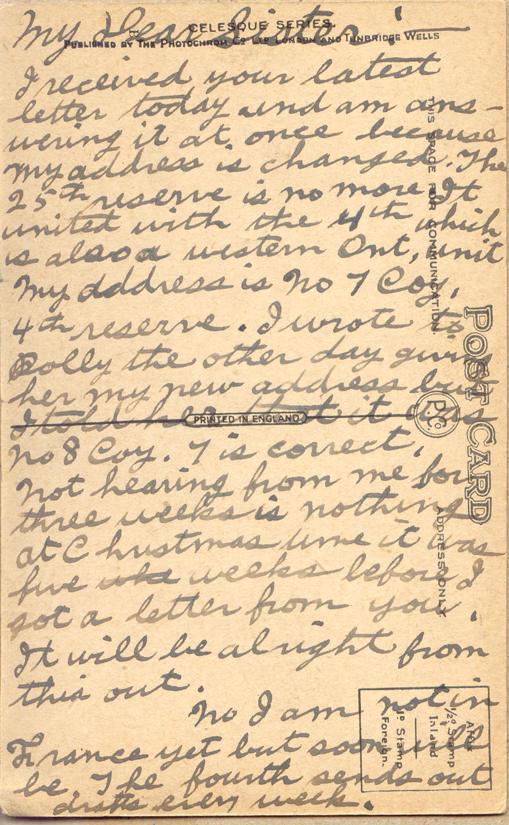 My Dear Sister:
I received your latest
letter today and am ans-
wering it at once because
my address is changed. The
25th reserve is no more. It
united with the 4th which
is also a western Ont, unit
My address is No 7 Coy,
4th reserve. I wrote to
Polly the other day giving
her my new address but
I told her that it was
No 8 Coy. 7 is correct.
Not hearing from me for
three weeks is nothing
at Christmas time it was
five weeks before I
got a letter from you.
It will be alright from
this out.
No I am not in
France yet but soon will
be. The fourth sends out
drafts every week.
CELESQUE SERIES.
PUBLISHED BY THE PHOTOCHROM CO. LTD. LONDON AND TUNBRIDGE WELLS
THIS SPACE FOR COMMUNICATION.
POST CARD
PRINTED IN ENGLAND
ADDRESS ONLY
Affix
½D Stamp
Inland
1D Stamp
Foreign.